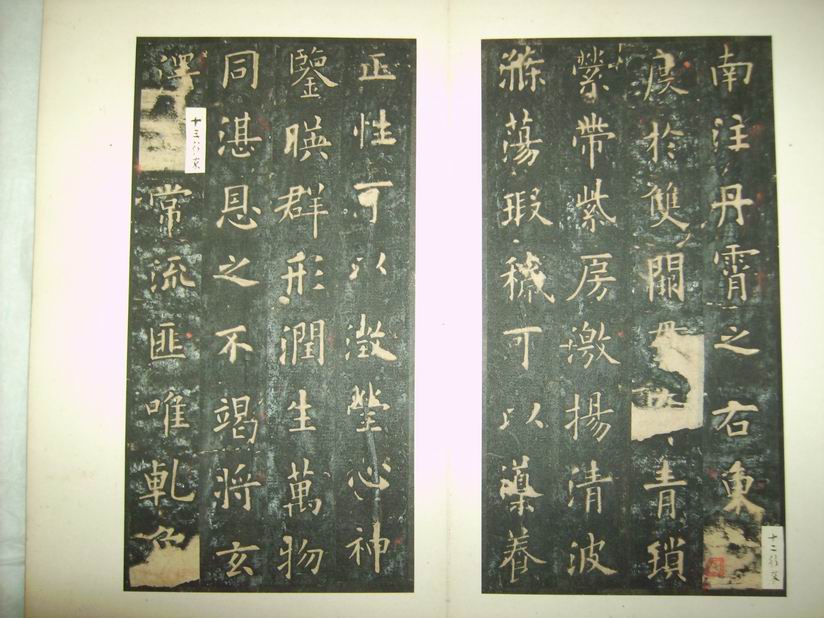 南注丹霄之右東
度於雙闕青瑣
縈帶紫房激揚清波
滌蕩瑕穢可以導養
十二行
正性可以澂瑩心神
鑒暎群形潤生萬物
同湛恩之不竭將玄
澤常流匪唯乾
十三行